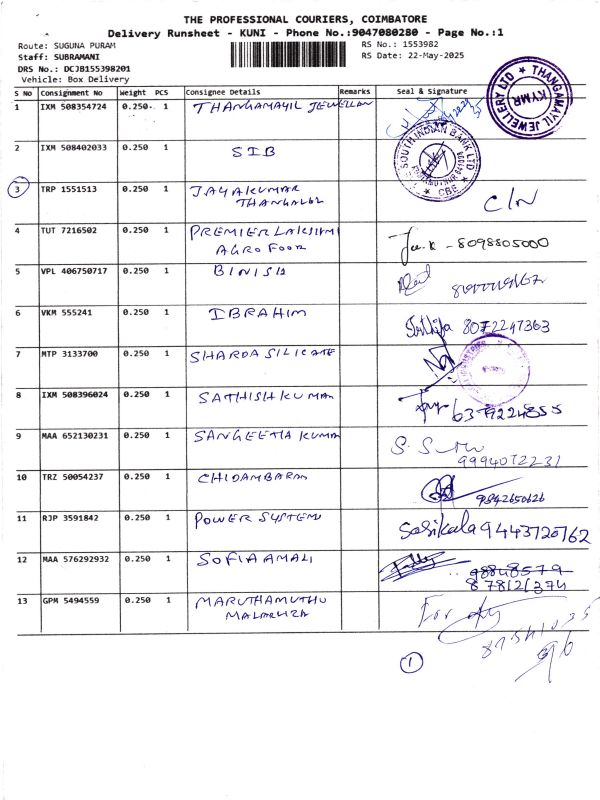 THE PROFESSIONAL COURIERS, COIMBATORE
Delivery Runsheet - KUNI - Phone No.:9047080280 - Page No.:1
Route: SUGUNA PURAM
RS No.: 1553982
Staff: SUBRAMANI
RS Date: 22-May-2025
DRS No.: DCJB155398201
Vehicle: Box Delivery
S No Consignment No Weight PCS Consignee Details Remarks Seal & Signature
1 IXM 508354724 0.250 1 THANGAMAYIL JEWELLARY
THANGAMAYIL JEWELLERY LTD
KYMR
2 IXM 508402033 0.250 1 SIB
THE SOUTH INDIAN BANK LTD
CBE
3 TRP 1551513 0.250 1 JAYAKUMAR
C/N
4 TUT 7216502 0.250 1 PREMIER LAKSHMI
AGRO FOOD
8098805000
5 VPL 406750717 0.250 1 BINISH
6 VKM 555241 0.250 1 IBRAHIM
8072247363
7 MTP 3133700 0.250 1 SHARDA SILICATE
8 IXM 508396024 0.250 1 SATHISH KUMAR
6379224855
9 MAA 652130231 0.250 1 SANGEETHA KUMAR
9994072231
10 TRZ 50054237 0.250 1 CHIDAMBARAM
9842650626
11 RJP 3591842 0.250 1 POWER SYSTEM
Sasikala 9443720762
12 MAA 576292932 0.250 1 SOFIA AMALI
98848579
878121374
13 GPM 5494559 0.250 1 MARUTHAMUTHU
For
1